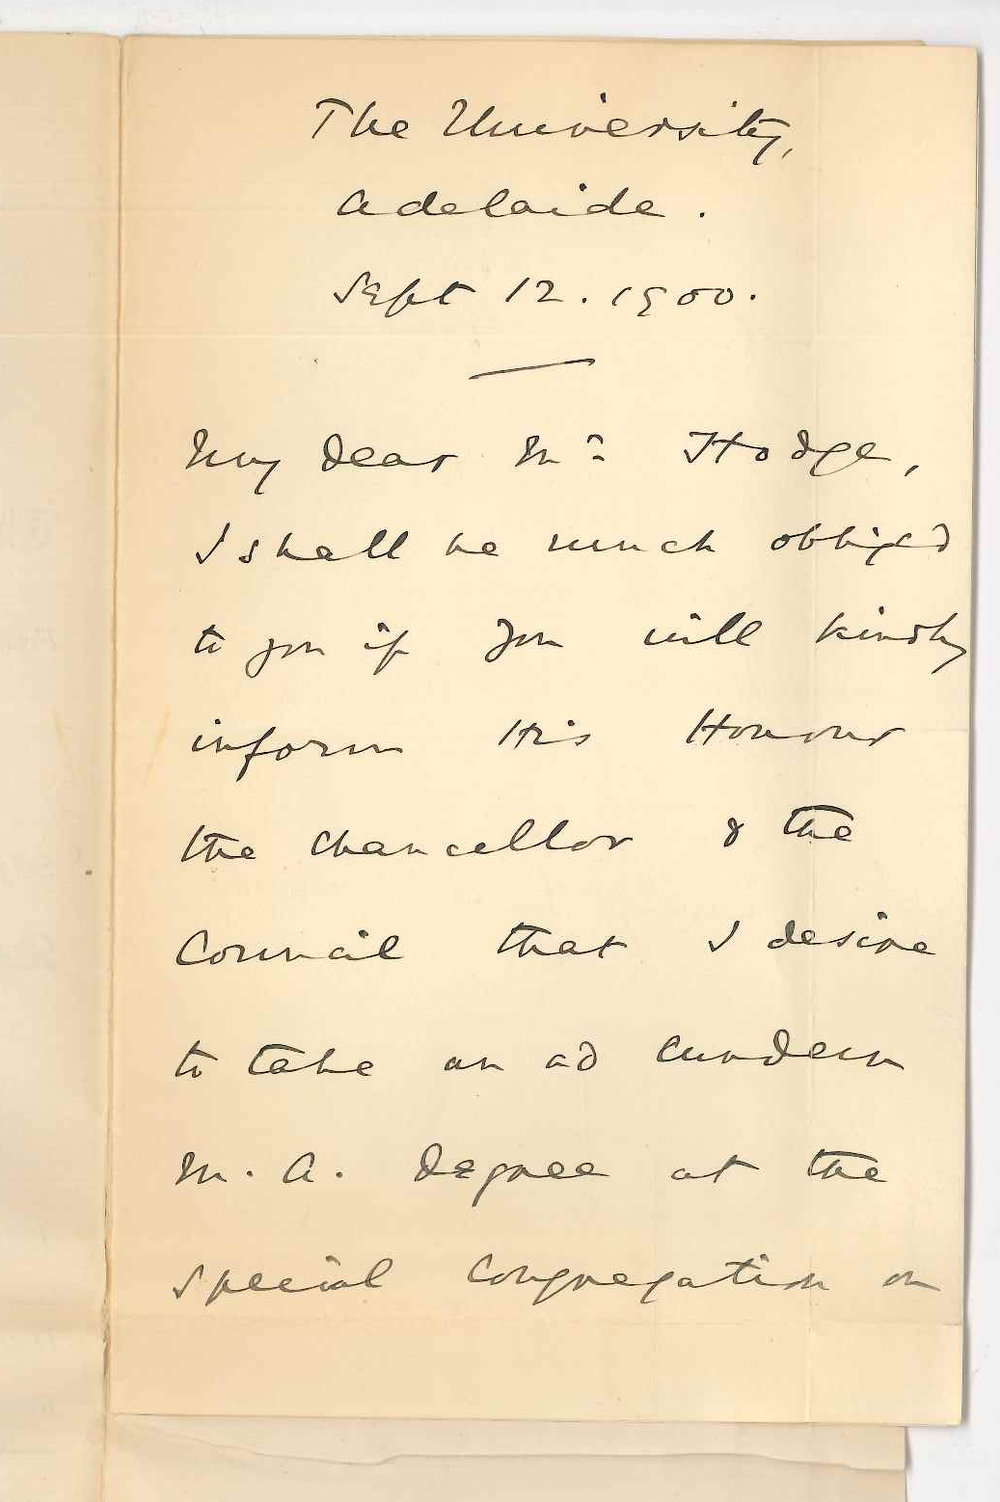 The University,
Adelaide.
Sept 12. 1900.
My dear Mr Hodge,
I shall be much obliged
to you if you will kindly
inform His Honour
the Chancellor & the
Council that I desire
to take an ad eundem
M. A. degree at the
special Congregation on